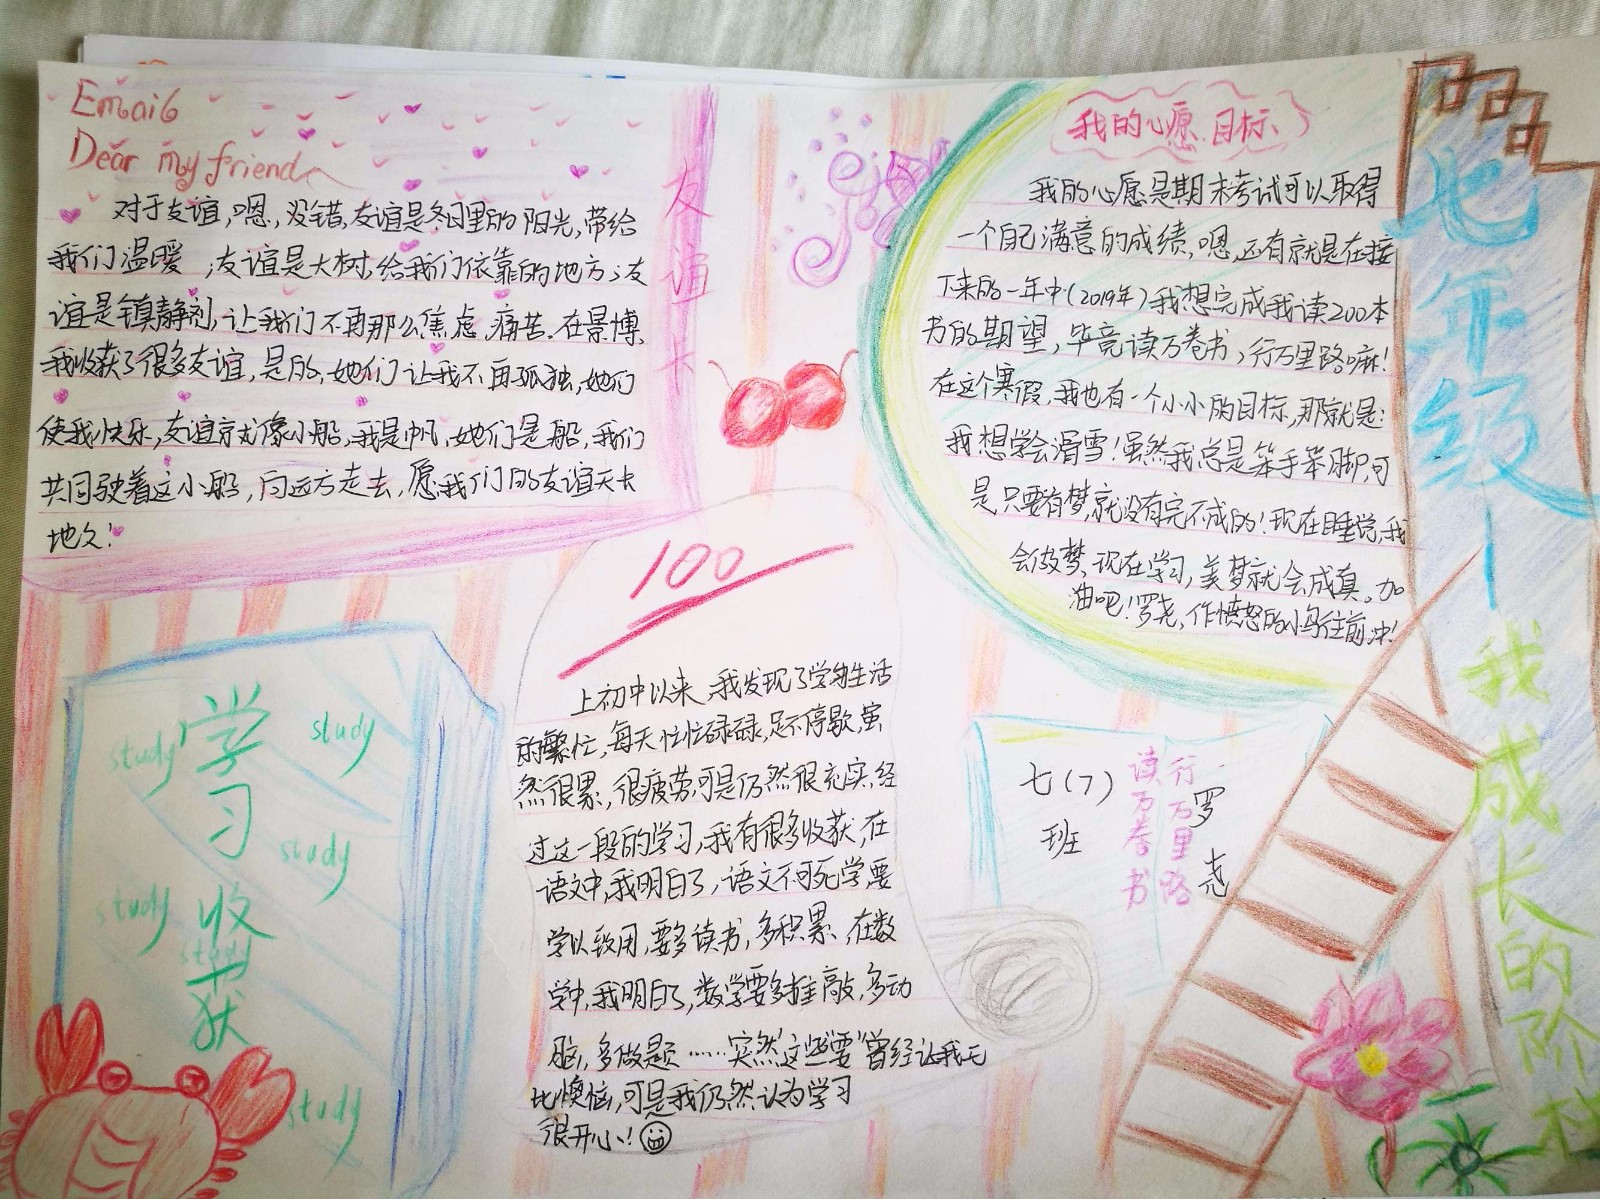 Emai6
Dear my friend
对于友谊,嗯,没错,友谊是冬日里的阳光,带给
我们温暖 ;友谊是大树,给我们依靠的地方;友
谊是镇静剂,让我们不再那么焦虑,痛苦.在景博,
我收获了很多友谊,是的,她们让我不再孤独,她们
使我快乐,友谊就像小船,我是帆,她们是船,我们
共同驶着这小船,向远方走去,愿我们的友谊天长
地久!
友谊长
我的心愿.目标
我的心愿是期末考试可以取得
一个自己满意的成绩,嗯,还有就是在接
下来的一年中(2019年)我想完成我读200本
书的期望,毕竟读万卷书,行万里路嘛!
在这个寒假,我也有一个小小的目标,那就是:
我想学会滑雪!虽然我总是笨手笨脚,可
是只要有梦,就没有完不成的!现在睡觉,我
会做梦,现在学习,美梦就会成真。加
油吧!罗尧,作愤怒的小鸟往前冲!
七年级—
我成长的阶梯
学习收获
study
study
study
study
study
study
100
上初中以来,我发现了学生生活
的繁忙,每天忙忙碌碌,足不停歇,虽
然很累,很疲劳,可是仍然很充实,经
过这一段的学习,我有很多收获,在
语文中,我明白了,语文不可死学,要
学以致用,要多读书,多积累,在数
学中,我明白了,数学要多推敲,多动
脑,多做题……突然“这些要”曾经让我无
比懊恼,可是我仍然认为学习
很开心!
七(7)
班
读万卷书
行万里路
罗尧